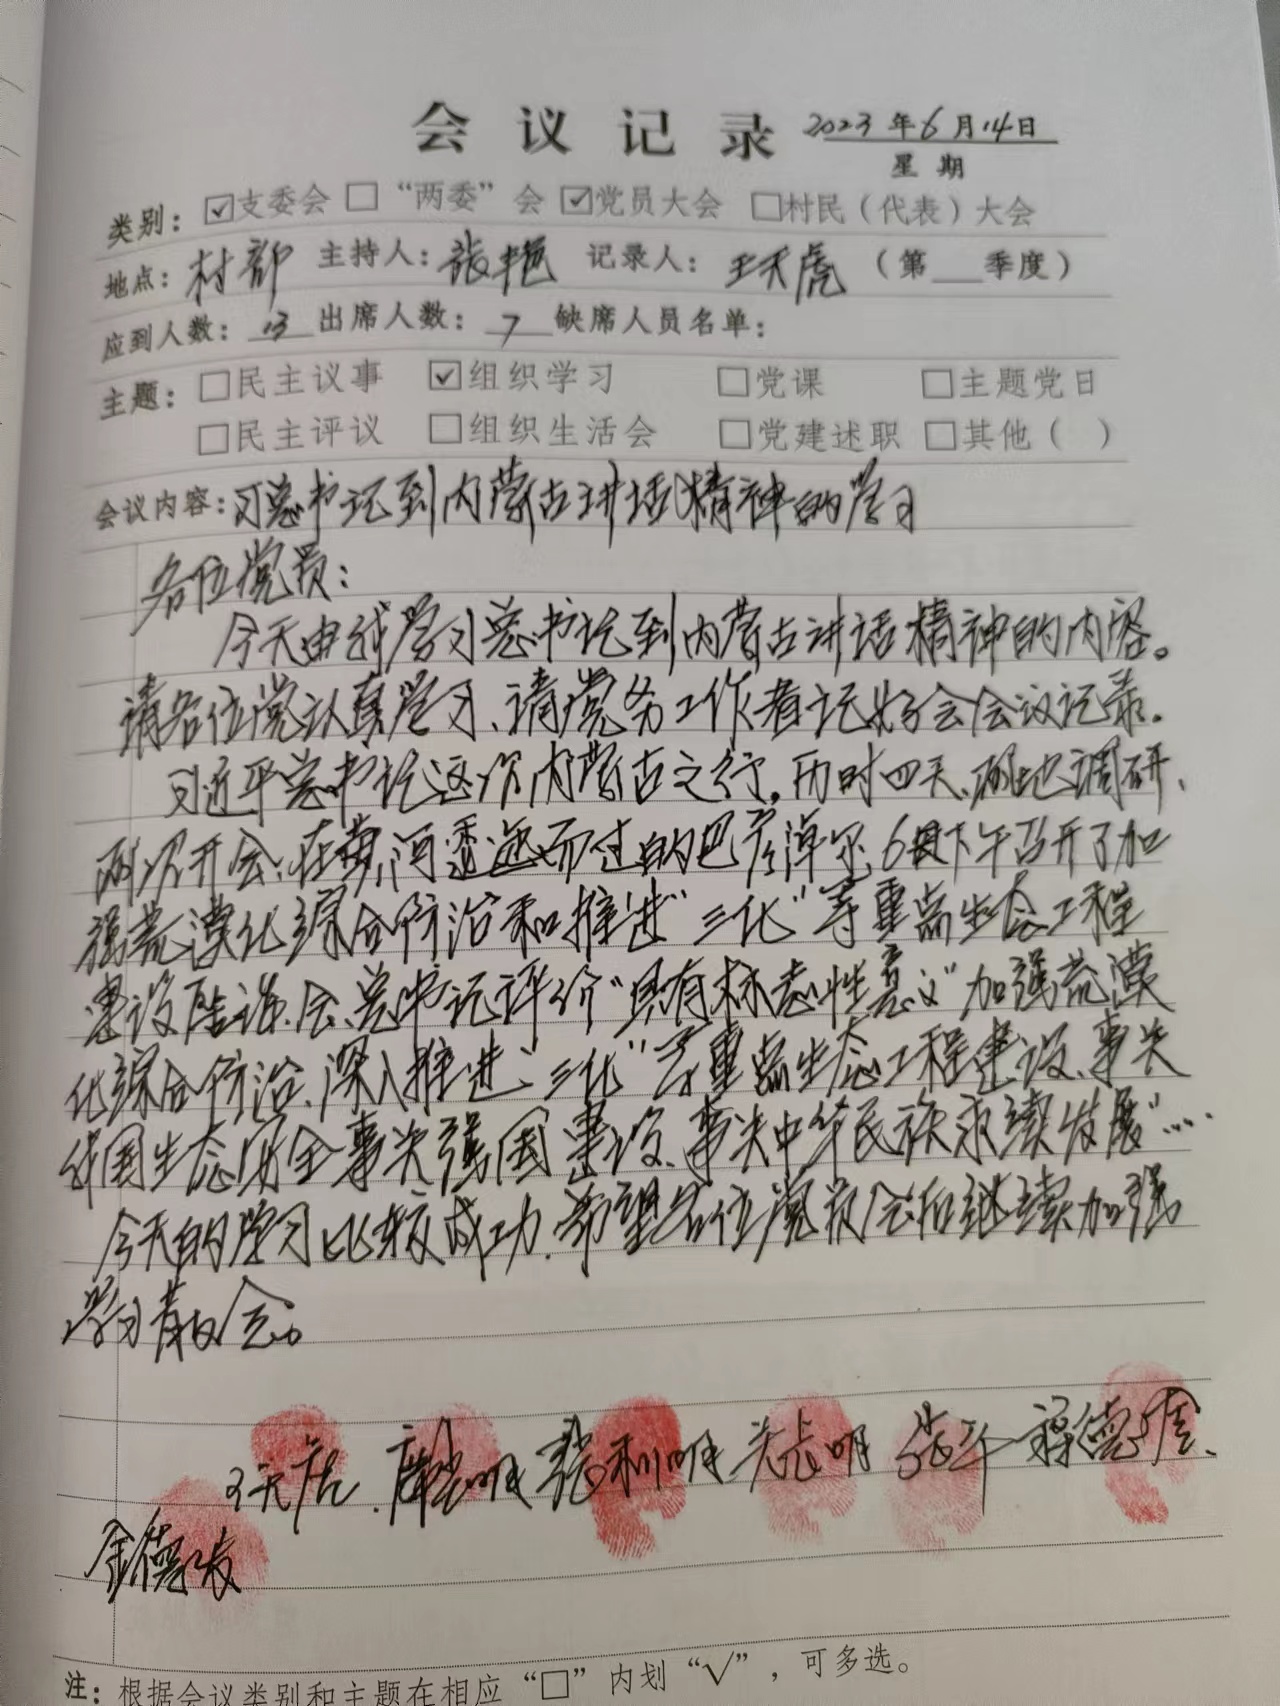 会议记录 2023年6月14日
星期
类别：☑支委会 □“两委”会 ☑党员大会 □村民（代表）大会
地点：村部 主持人：张艳 记录人：王天虎 （第 季度）
应到人数：13 出席人数：7 缺席人员名单：
主题：□民主议事 ☑组织学习 □党课 □主题党日
□民主评议 □组织生活会 □党建述职 □其他（ ）
会议内容：习总书记到内蒙古讲话精神的学习
各位党员：
今天由我学习总书记到内蒙古讲话精神的内容。
请各位党认真学习、请党务工作者记好会会议记录。
习近平总书记这次内蒙古之行，历时四天、两地调研、
两次开会、在黄河透迤而过的巴彦淖尔，6日下午召开了加
强荒漠化综合防治和推进“三化”等重点生态工程
建设座谈会、总书记评价“具有标志性意义”加强荒漠
化综合防治、深入推进“三化”等重点生态工程建设、事关
我国生态安全事关强国建设、事关中华民族永续发展”……
今天的学习比较成功，希望各位党员会后继续加强
学习散会。
王天虎、 明 张利明 关志明 张平 德
金德
注：根据会议类别和主题在相应“□”内划“√”，可多选。